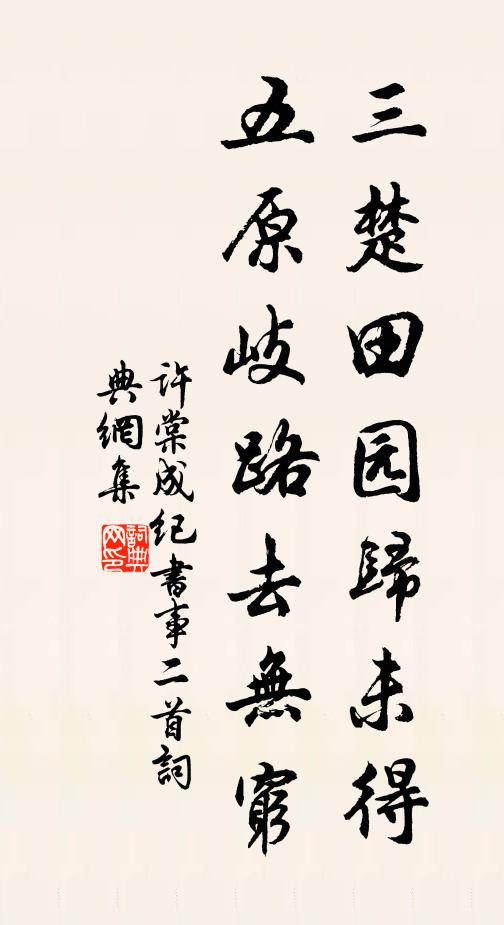 三楚田园歸未得
五原岐路去無窮
許棠成纪書事二首詞
典網集
詞典网印